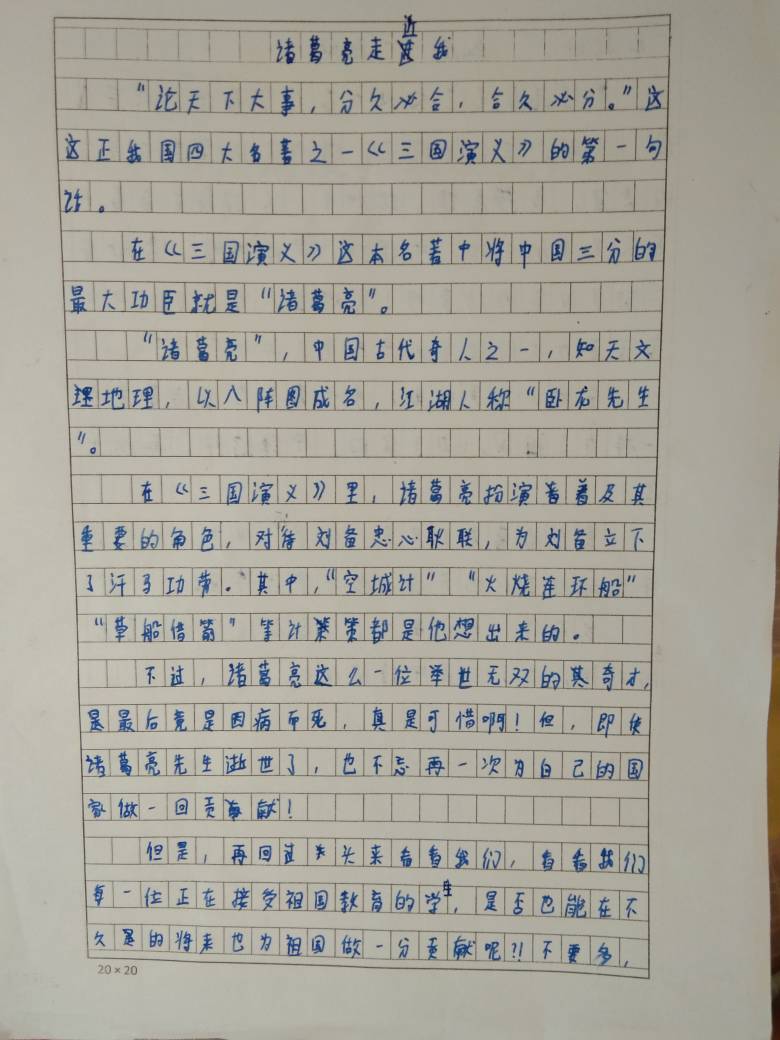 诸葛亮走近我
"论天下大事，分久必合，合久必分。"这
这正我国四大名著之一《三国演义》的第一句
话。
在《三国演义》这本名著中将中国三分的
最大功臣就是"诸葛亮"。
"诸葛亮"，中国古代奇人之一，知天文
理地理，以八阵图成名，江湖人称"卧龙先生
"。
在《三国演义》里，诸葛亮扮演着着及其
重要的角色，对待刘备忠心耿联，为刘备立下
了汗马功劳。其中，"空城计""火烧连环船"
"草船借箭"等计策都是他想出来的。
不过，诸葛亮这么一位举世无双的其奇才，
是最后竟是因病而死，真是可惜啊！但，即使
诸葛亮先生逝世了，也不忘再一次为自己的国
家做一回贡献！
但是，再回过头来看看我们，看看我们
每一位正在接受祖国教育的学生，是否也能在不
久是的将来也为祖国做一分贡献呢?!不要多，
20×20